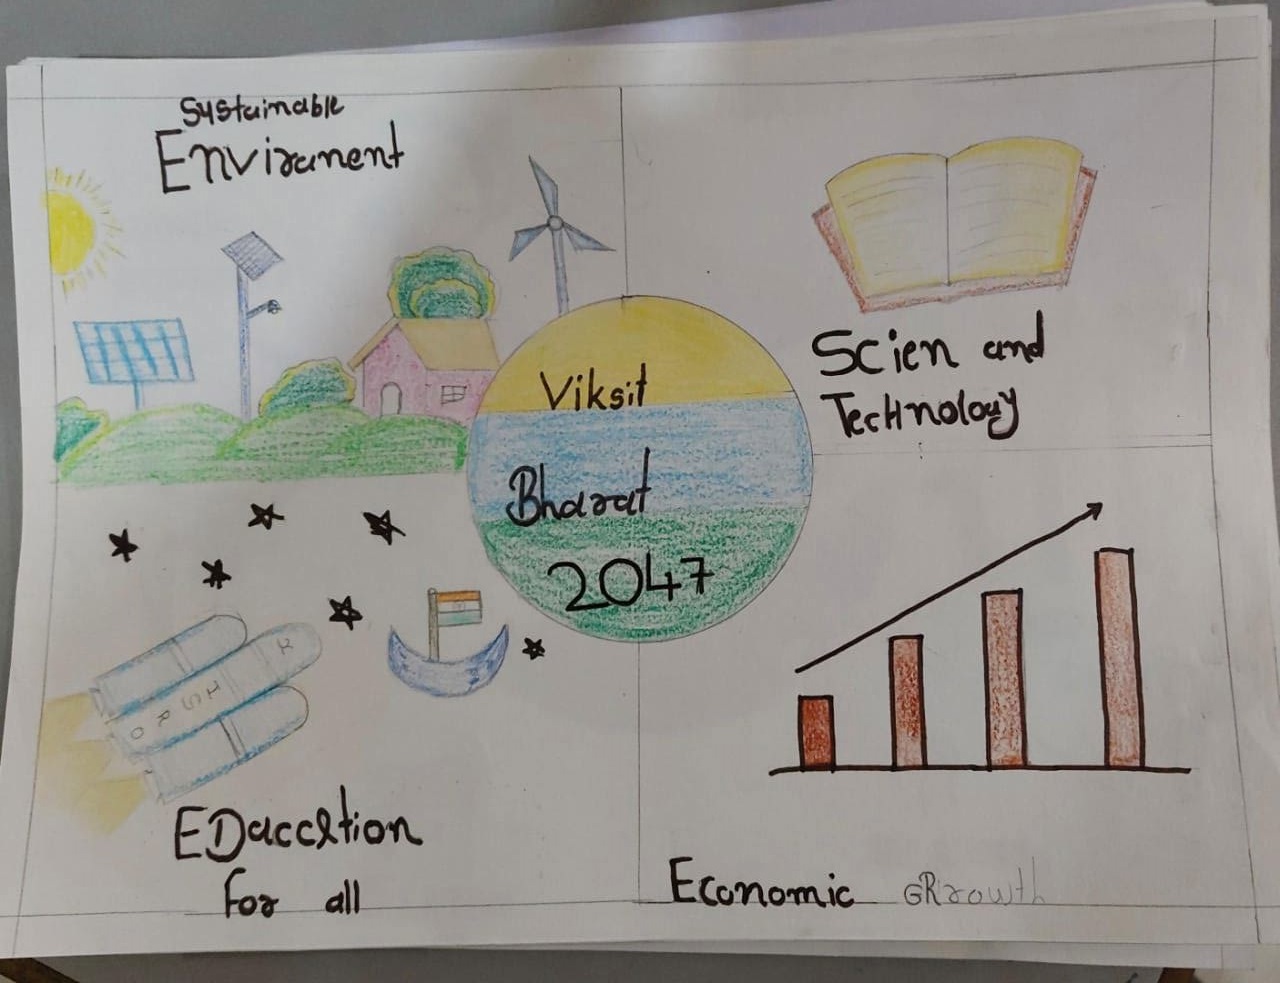 Sustainable
Enviranment
Scien and
Technology
Viksit
Bharat
2047
EDaccltion
for all
Economic GRrowth